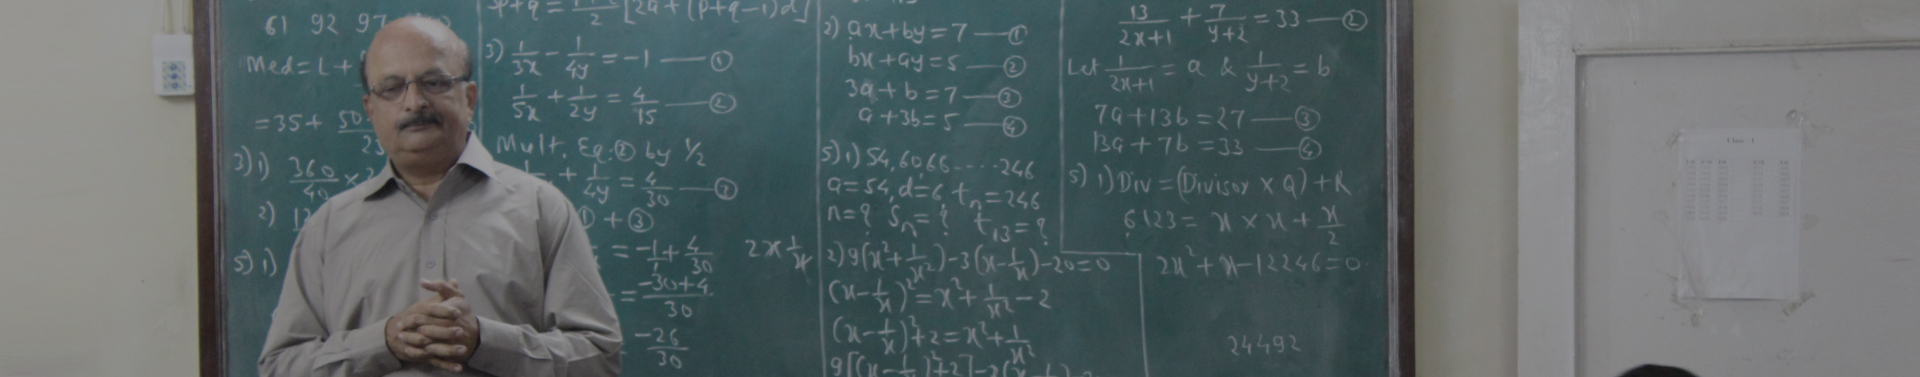 61 92 97
Med = L +
= 35 + 50
23
3) 1) 360/40 ×
2) 12
5) 1)
p+q = /2 [2a + (p+q-1)d]
3) 1/3x - 1/4y = -1 — ①
1/5x + 1/2y = 4/15 — ②
Mult. Eq. ② by 1/2
+ 1/4y = 4/30 — ③
① + ③
= -1/1 + 4/30
= -30+4/30
-26/30
2x 1/x
2) ax + by = 7 — ①
bx + ay = 5 — ②
3a + b = 7 — ③
a + 3b = 5 — ④
5) 1) 54, 60, 66 ..... 246
a = 54, d = 6 tn = 246
n = ? Sn = ? t13 = ?
2) 9(x² + 1/x²) - 3(x - 1/x) - 20 = 0
(x - 1/x)² = x² + 1/x² - 2
(x - 1/x)² + 2 = x² + 1/x²
13/2x+1 + 7/y+2 = 33 — ②
Let 1/2x+1 = a & 1/y+2 = b
7a + 13b = 27 — ③
13a + 7b = 33 — ④
5) 1) Div = (Divisor × Q) + R
6123 = x × x + x/2
2x² + x - 12246 = 0
24492